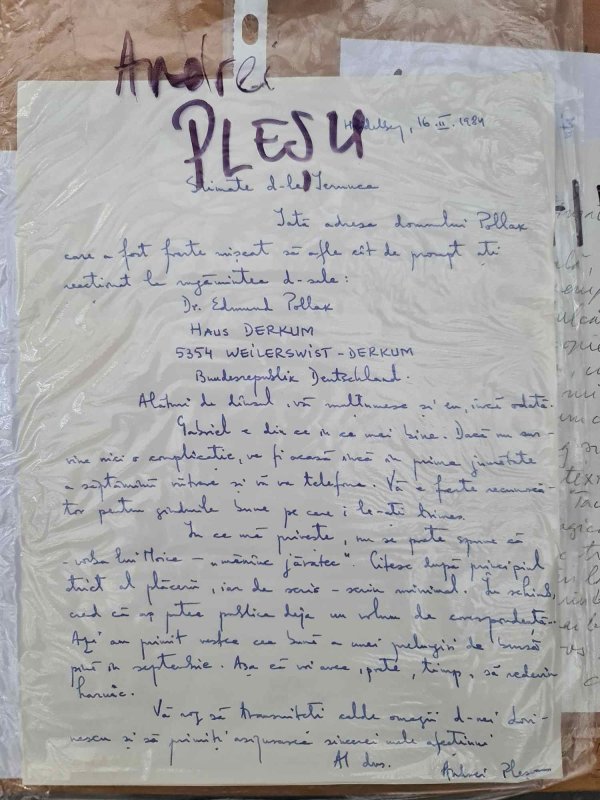 Andrei
PLEȘU
Heidelberg, 16.II.1984
Stimate d-le Ierunca
Iată adresa domnului Pollax
care a fost foarte mișcat să afle cît de prompt ați
reacționat la rugămintea d-sale:
Dr. Edmund Pollax
HAUS DERKUM
5354 WEILERSWIST-DERKUM
Bundesrepublik Deutschland.
Alături de dînsul, vă mulțumesc și eu, încă odată.
Gabriel e din ce în ce mai bine. Dacă nu sur-
vine nici o complicație, va fi acasă încă în prima jumătate
a săptămînii viitoare și vă va telefona. Vă e foarte recunoscă-
tor pentru gîndurile bune pe care i le-ați trimes.
În ce mă privește, nu se poate spune că
- vorba lui Noica - "mănînc jăratec". Citesc după principiul
strict al plăcerii, iar de scris - scriu minimal. În schimb,
cred că aș putea publica deja un volum de corespondență.
Azi am primit vestea cea bună a unei prelungiri de bursă
pînă în septembrie. Așa că voi avea, poate, timp, să redevin
harnic.
Vă rog să transmiteți calde omagii d-nei Lovi-
nescu și să primiți asigurarea sincerei mele afecțiuni
Al dvs.
Andrei Pleșu